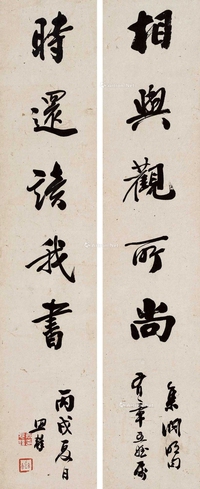 相與觀所尚
集淵明句
有章五屬
時還讀我書
丙戌夏日